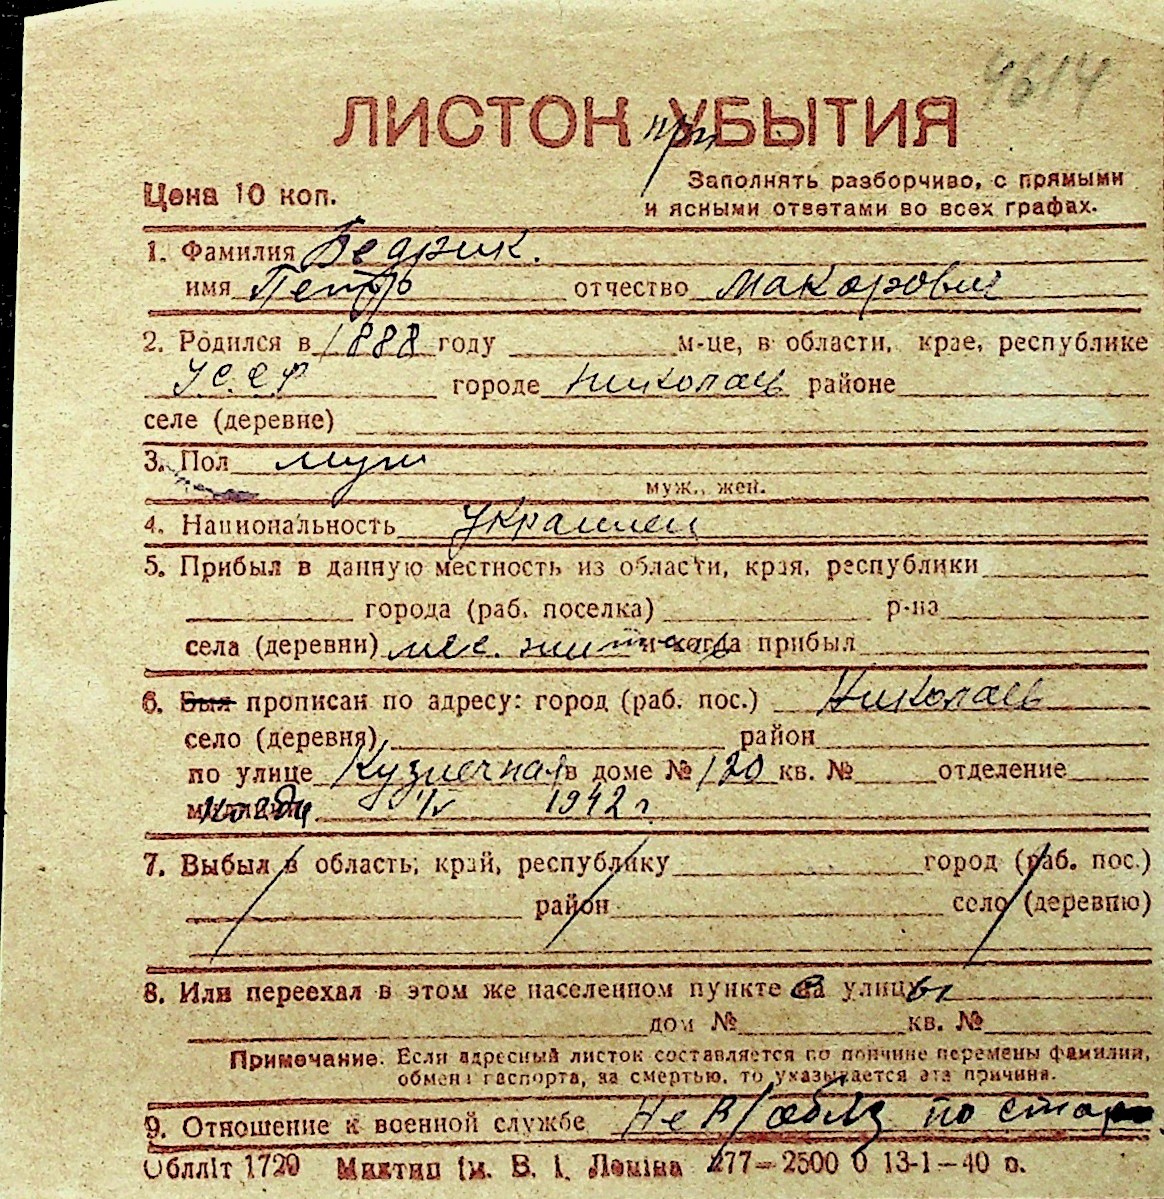 4614
ЛИСТОК при УБЫТИЯ
Цена 10 коп.
Заполнять разборчиво, с прямыми
и ясными ответами во всех графах.
1. Фамилия Бедрик.
имя Петр отчество Макарович
2. Родился в 1888 году м-це, в области, крае, республике
УССР городе Николаев районе
селе (деревне)
3. Пол муж
муж., жен.
4. Национальность Украинец
5. Прибыл в данную местность из области, края, республики
города (раб. поселка) р-на
села (деревни) мес. житель и когда прибыл
6. Был прописан по адресу: город (раб. пос.) Николаев
село (деревня) район
по улице Кузнечная в доме № 120 кв. № отделение
милиции когда 1942 г.
7. Выбыл в область, край, республику город (раб. пос.)
район село (деревню)
8. Или переехал в этом же населенном пункте с улицы
дом № кв. №
Примечание. Если адресный листок составляется по причине перемены фамилии,
обмена паспорта, за смертью, то указывается эта причина.
9. Отношение к военной службе Не в/обяз по стар
Облліт 1720 Миктип ім. В. І. Леніна 277—2500 б 13-1—40 р.